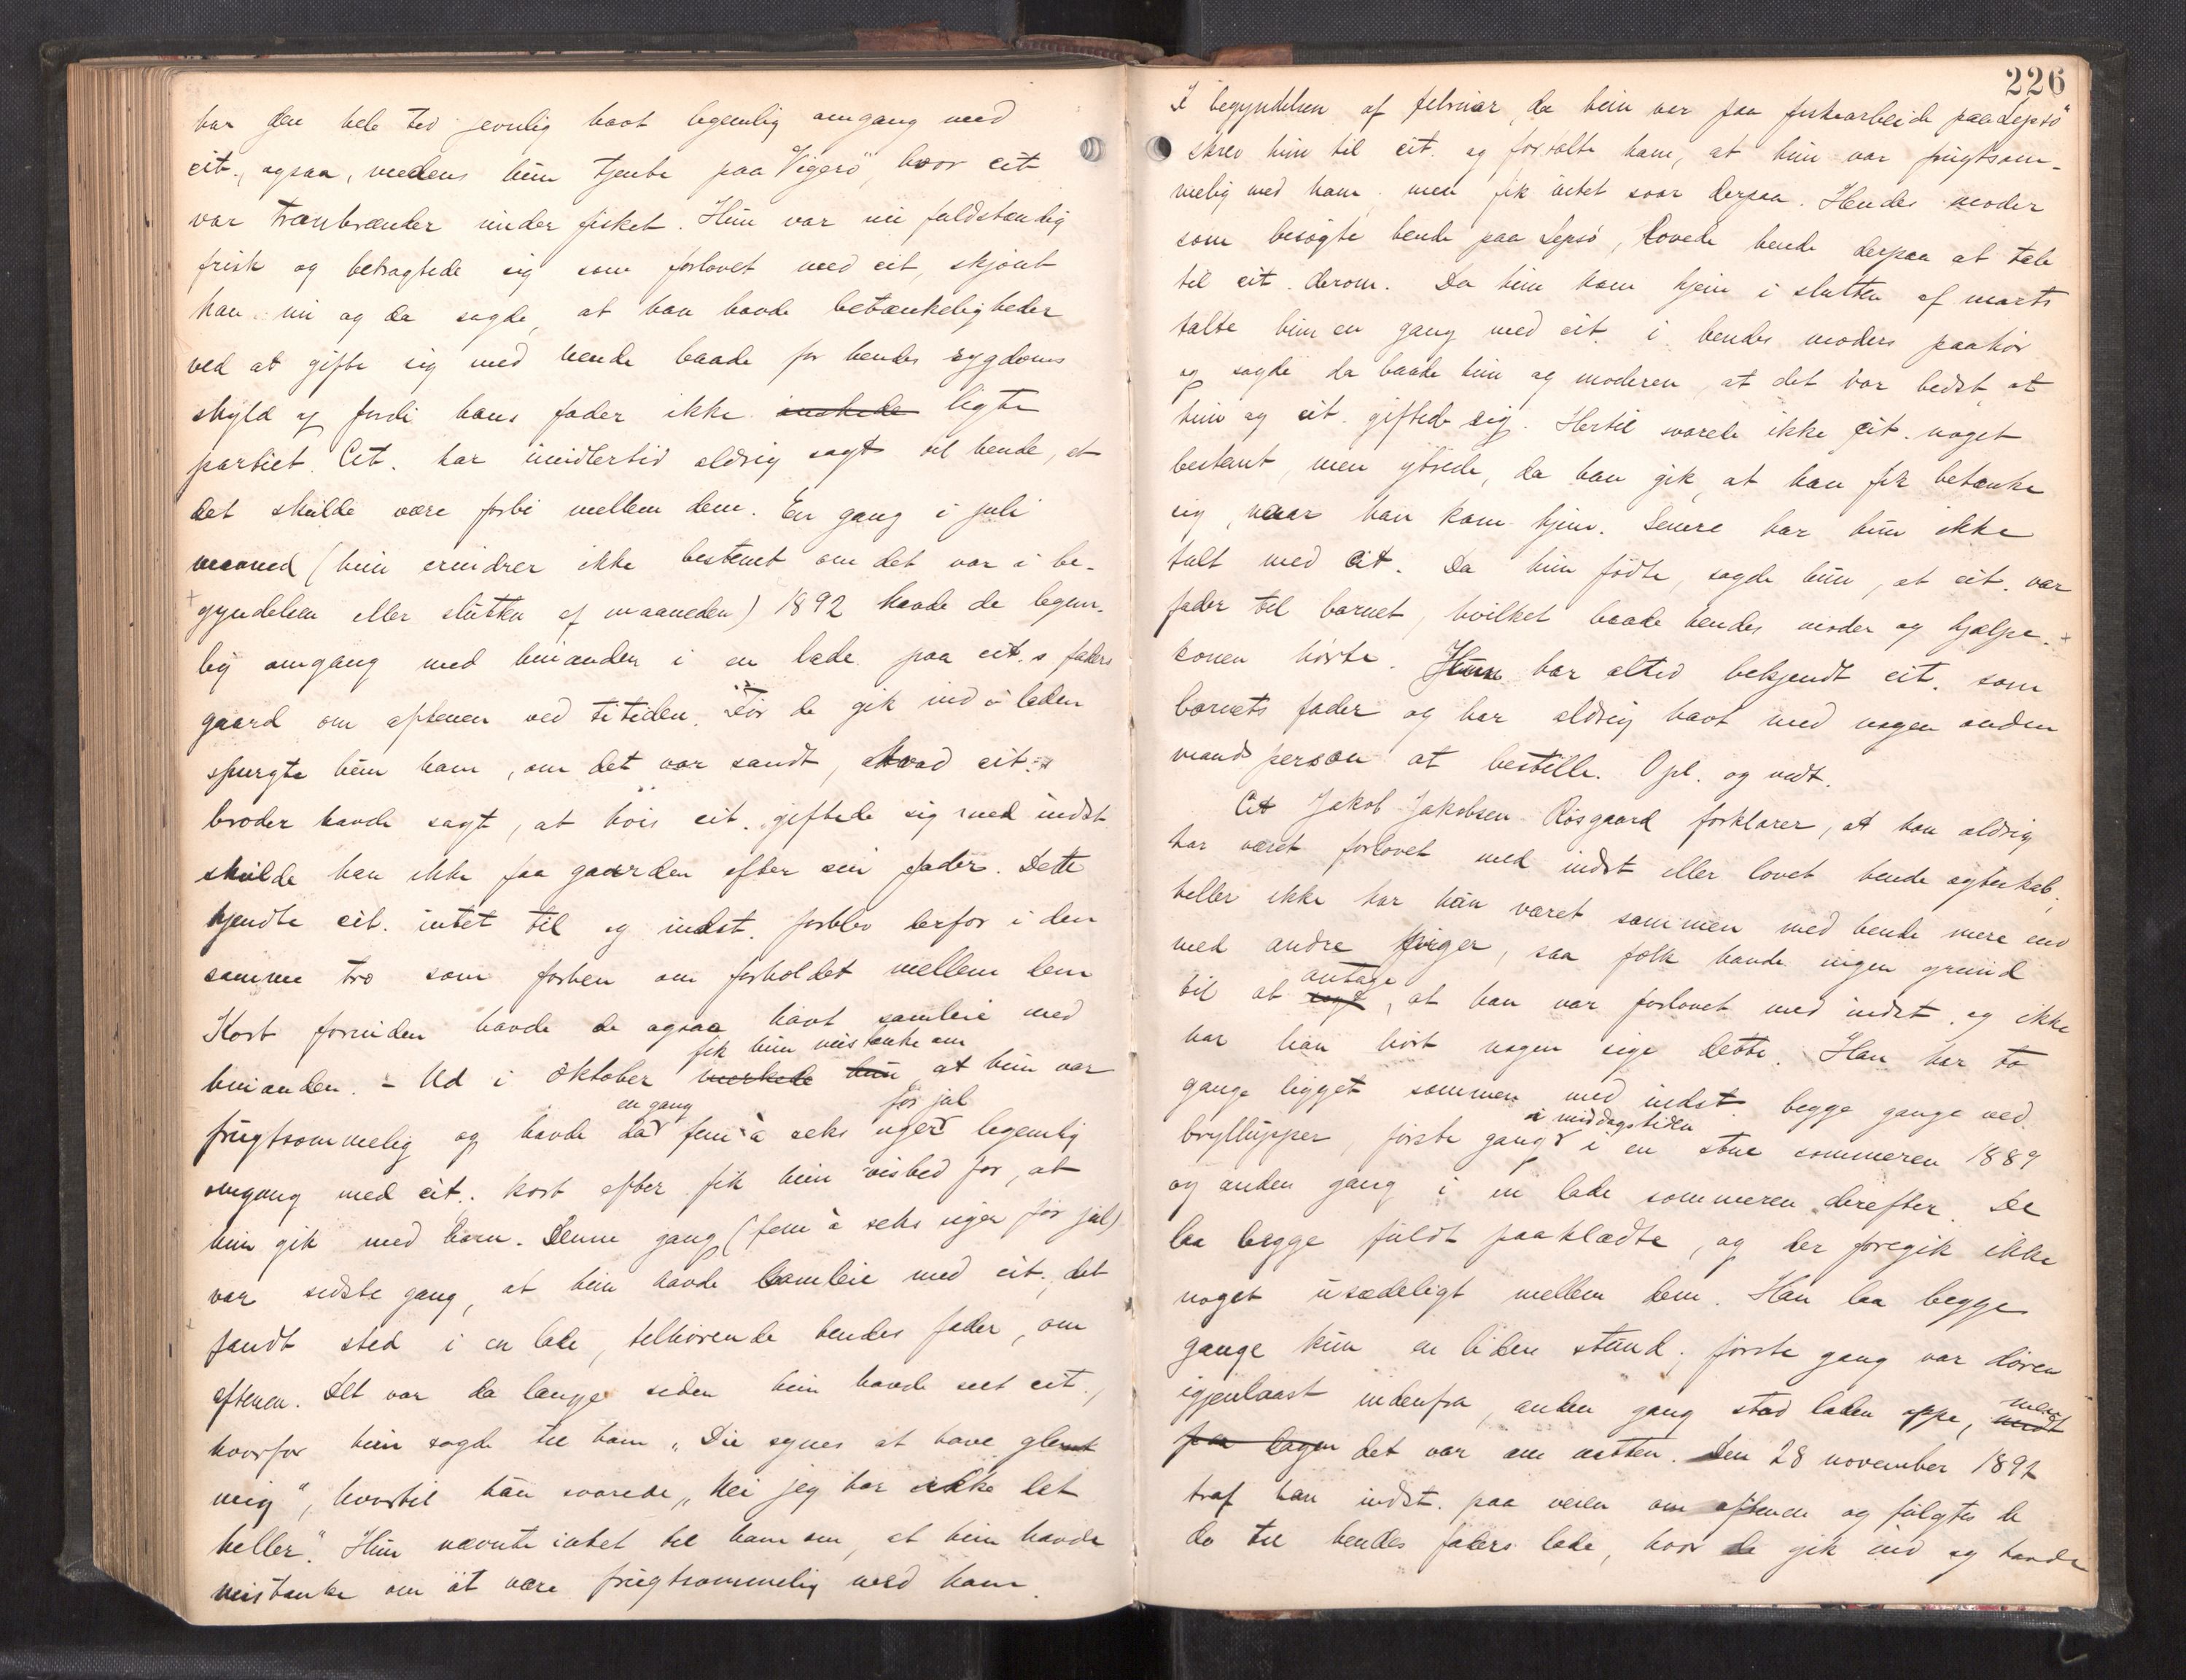 har den hele tid jevnlig havt legemlig omgang med
cit., ogsaa, medens hun tjente paa Vigerö, hvor cit
var tranbrænder under fisket. Hun var nu fuldstændig
frisk og betragtede sig som forlovet med cit, skjönt
han nu og da sagde, at han havde betænkeligheder
ved at gifte sig med hende baade for hendes sygdoms
skyld og fordi hans fader ikke önskede ligte
partiet. Cit. har imidlertid aldrig sagt til hende, at
det skulde være forbi mellem dem. En gang i juli
maaned (hun erindrer ikke bestemt om det var i be-
gyndelsen eller slutten af maaneden) 1892 havde de legem-
lig omgang med hinanden i en lade paa cit.s faders
gaard om aftenen ved titiden. För de gik ind i laden
spurgte hun ham, om det var sandt, hvad cit.s
broder havde sagt, at hvis cit. giftede sig med indst.
skulde han ikke faa gaarden efter sin fader. Dette
kjendte cit. intet til og indst. forblev derfor i den
samme tro som forhen om forholdet mellem dem
Kort forinden havde de ogsaa havt samleie med
hinanden. – Ud i oktober merkede hun fik hun mistanke om at hun var
frugtsommelig og havde da en gang fem à seks uger för jul legemlig
omgang med cit. Kort efter fik hun vished for, at
hun gik med barn. Denne gang (fem à seks uger för jul)
var sidste gang, at hun havde samleie med cit.; det
fandt sted i en lade, tilhörende hendes fader, om
aftenen. Det var da længe siden hun havde seet cit.,
hvorfor hun sagde til ham „Du synes at have glemt
mig", hvortil han svarede „Nei jeg har ikke det
heller." Hun nævnte intet til ham om, at hun havde
mistanke om at være frugtsommelig med ham.
226
I begyndelsen af februar, da hun var paa fiskearbeide paa Lepsö
skrev hun til cit. og fortalte ham, at hun var frugtsom-
melig med ham, men fik intet svar derpaa. Hendes moder
som besögte hende paa Lepsö, lovede hende derpaa at tale
til cit. derom. Da hun kom hjem i slutten af marts
talte hun en gang med cit. i hendes moders paahör
og sagde da baade hun og moderen, at det var bedst, at
hun og cit. giftede sig. Hertil svarede ikke cit. noget
bestemt, men ytrede, da han gik, at han fik betænke
sig, naar han kom hjem. Senere har hun ikke
talt med cit. Da hun födte, sagde hun, at cit. var
fader til barnet, hvilket baade hendes moder og hjælpe-
konen hörte. Hun har altid bekjendt cit. som
barnets fader og har aldrig havt med nogen anden
mandsperson at bestille. Opl. og vedt.
Cit Jakob Jakobsen Rösgaard forklarer, at han aldrig
har været forlovet med indst eller lovet hende egteskab,
heller ikke har han været sammen med hende mere end
med andre piger, saa folk havde ingen grund
til at antage, at han var forlovet med indst. og ikke
har han hört nogen sige dette. Han har to
gange ligget sammen med indst. begge gange ved
bryllupper, förste gang i middagstiden i en stue sommeren 1889
og anden gang i en lade sommeren derefter. De
laa begge fuldt paaklædte, og der foregik ikke
noget usædeligt mellem dem. Han laa begge
gange kun en liden stund; förste gang var dören
igjenlaast indenfra, anden gang stod laden oppe, midt men
paa dagen det var om natten. Den 28 november 1892
traf han indst. paa veien om aftenen og fulgtes de
da til hendes faders lade, hvor de gik ind og havde